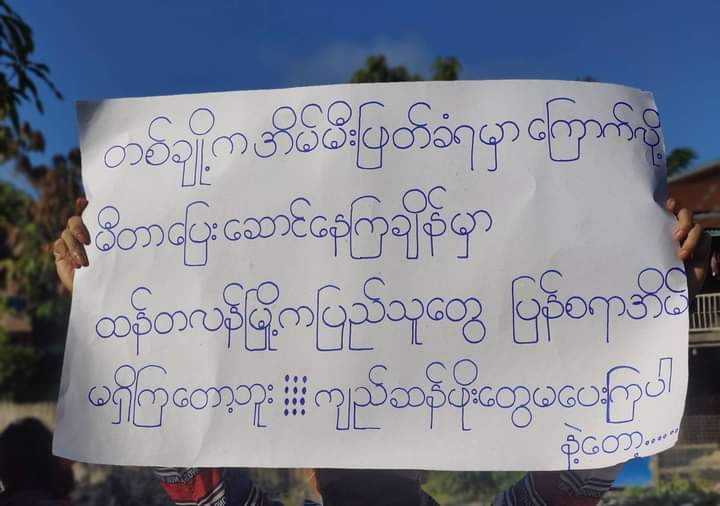 တစ်ချို့က အိမ်မီးဖြတ်ခံရမှာ ကြောက်လို့
မီတာပြေးဆောင်နေကြချိန်မှာ
ထန်တလန်မြို့ကပြည်သူတွေ ပြန်စရာအိမ်
မရှိကြတော့ဘူး ⁝⁝⁝ ကျည်ဆန်ဖိုးတွေမပေးကြပါ
နဲ့တော့......